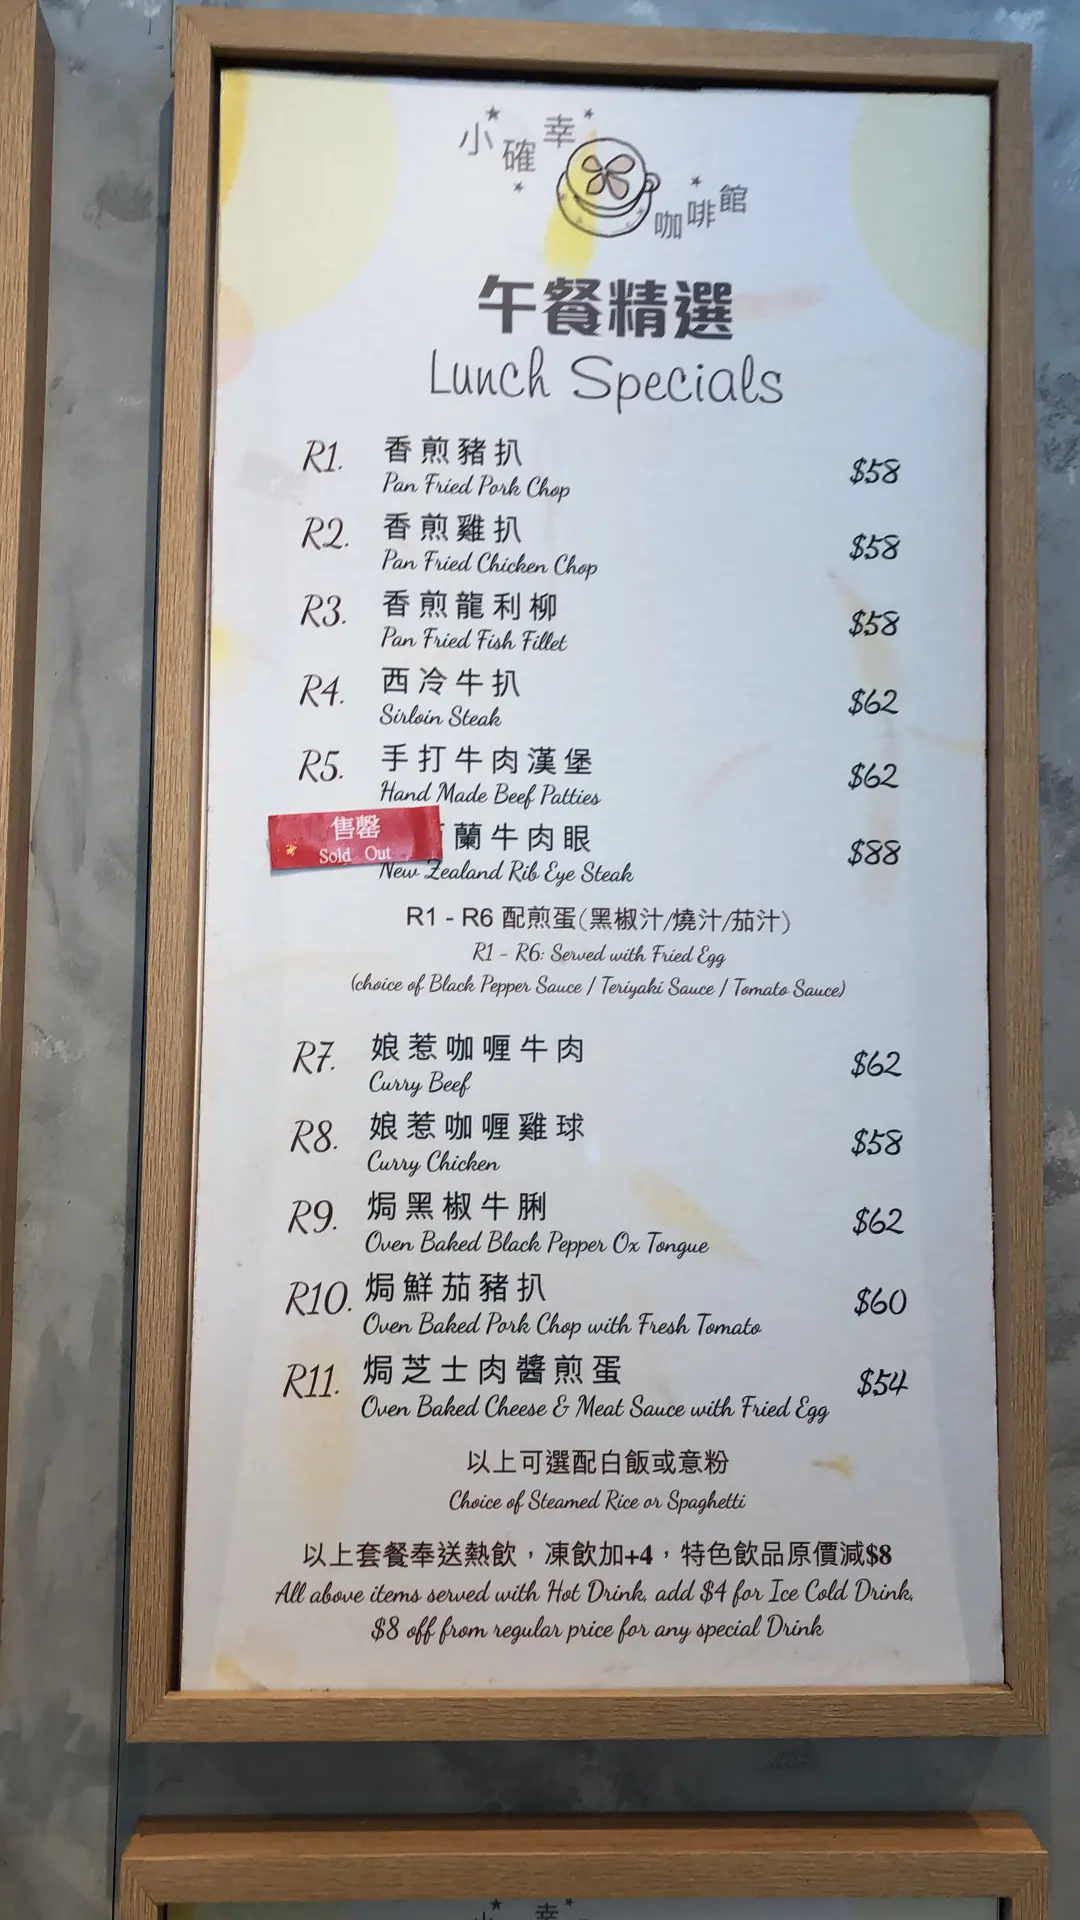 小確幸
咖啡館
午餐精選
Lunch Specials
R1. 香煎豬扒 $58
Pan Fried Pork Chop
R2. 香煎雞扒 $58
Pan Fried Chicken Chop
R3. 香煎龍利柳 $58
Pan Fried Fish Fillet
R4. 西冷牛扒 $62
Sirloin Steak
R5. 手打牛肉漢堡 $62
Hand Made Beef Patties
售罄
Sold Out
蘭牛肉眼 $88
New Zealand Rib Eye Steak
R1 - R6 配煎蛋(黑椒汁/燒汁/茄汁)
R1 - R6: Served with Fried Egg
(choice of Black Pepper Sauce / Teriyaki Sauce / Tomato Sauce)
R7. 娘惹咖喱牛肉 $62
Curry Beef
R8. 娘惹咖喱雞球 $58
Curry Chicken
R9. 焗黑椒牛脷 $62
Oven Baked Black Pepper Ox Tongue
R10. 焗鮮茄豬扒 $60
Oven Baked Pork Chop with Fresh Tomato
R11. 焗芝士肉醬煎蛋 $54
Oven Baked Cheese & Meat Sauce with Fried Egg
以上可選配白飯或意粉
Choice of Steamed Rice or Spaghetti
以上套餐奉送熱飲，凍飲加+4，特色飲品原價減$8
All above items served with Hot Drink, add $4 for Ice Cold Drink,
$8 off from regular price for any special Drink